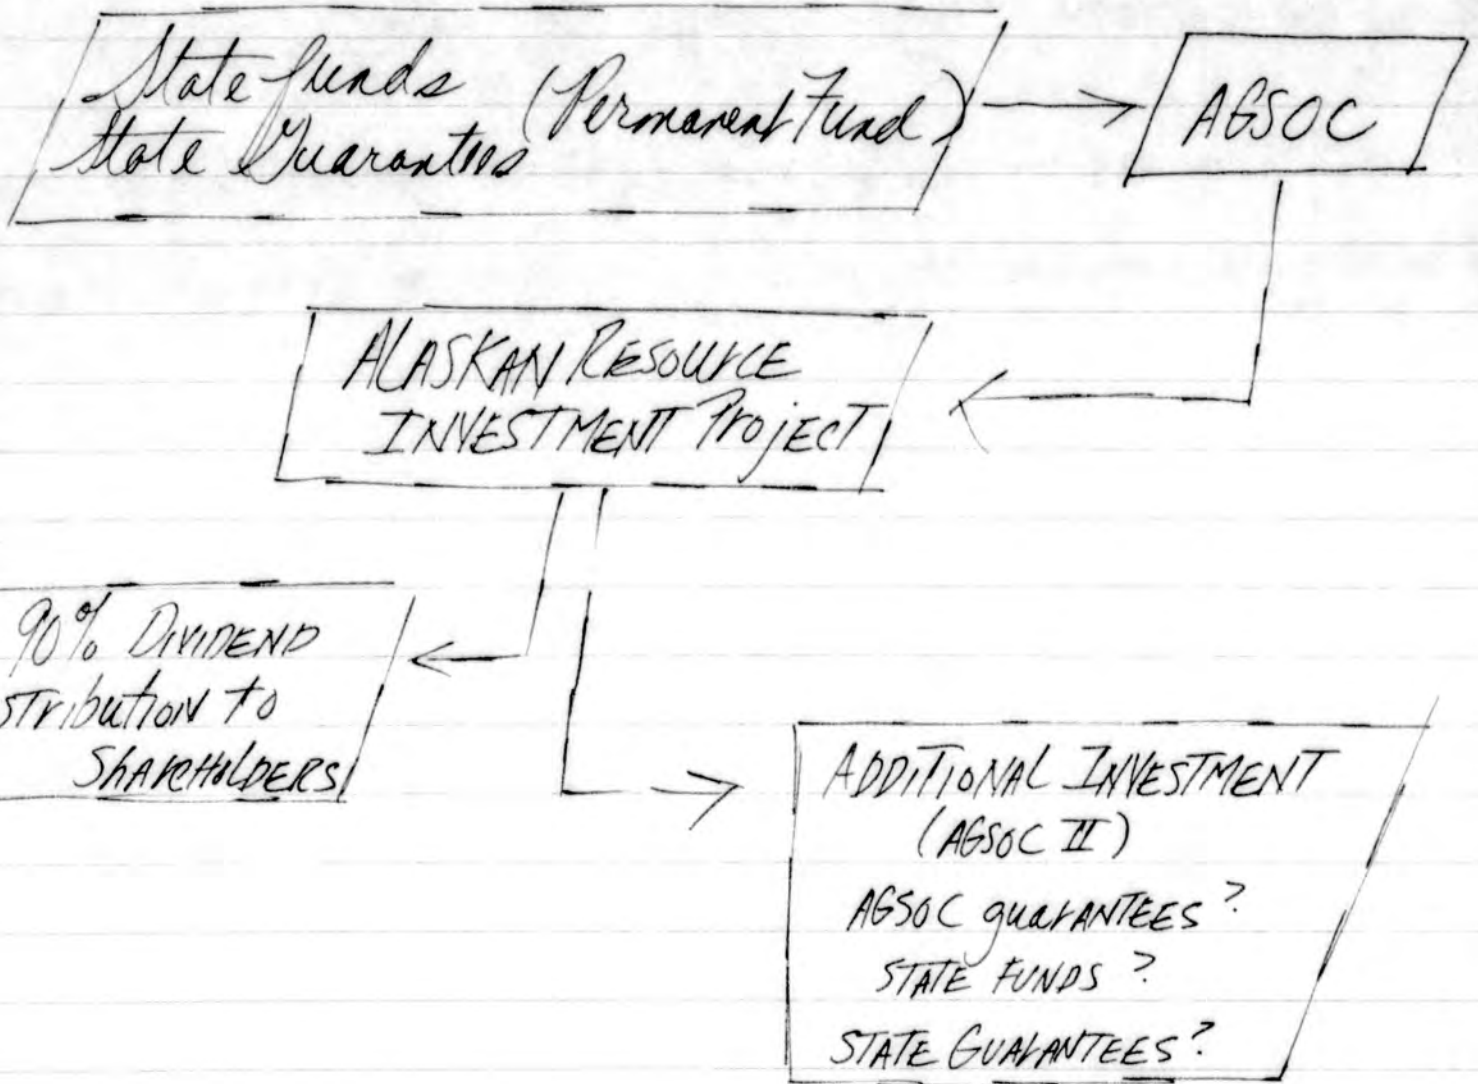 State funds (Permanent Fund)
State Guarantees
AGSOC
ALASKAN RESOURCE
INVESTMENT Project
90% DIVIDEND
stribution to
SHAREHOLDERS
ADDITIONAL INVESTMENT
(AGSOC II)
AGSOC guarANTEES?
STATE FUNDS?
STATE GUARANTEES?